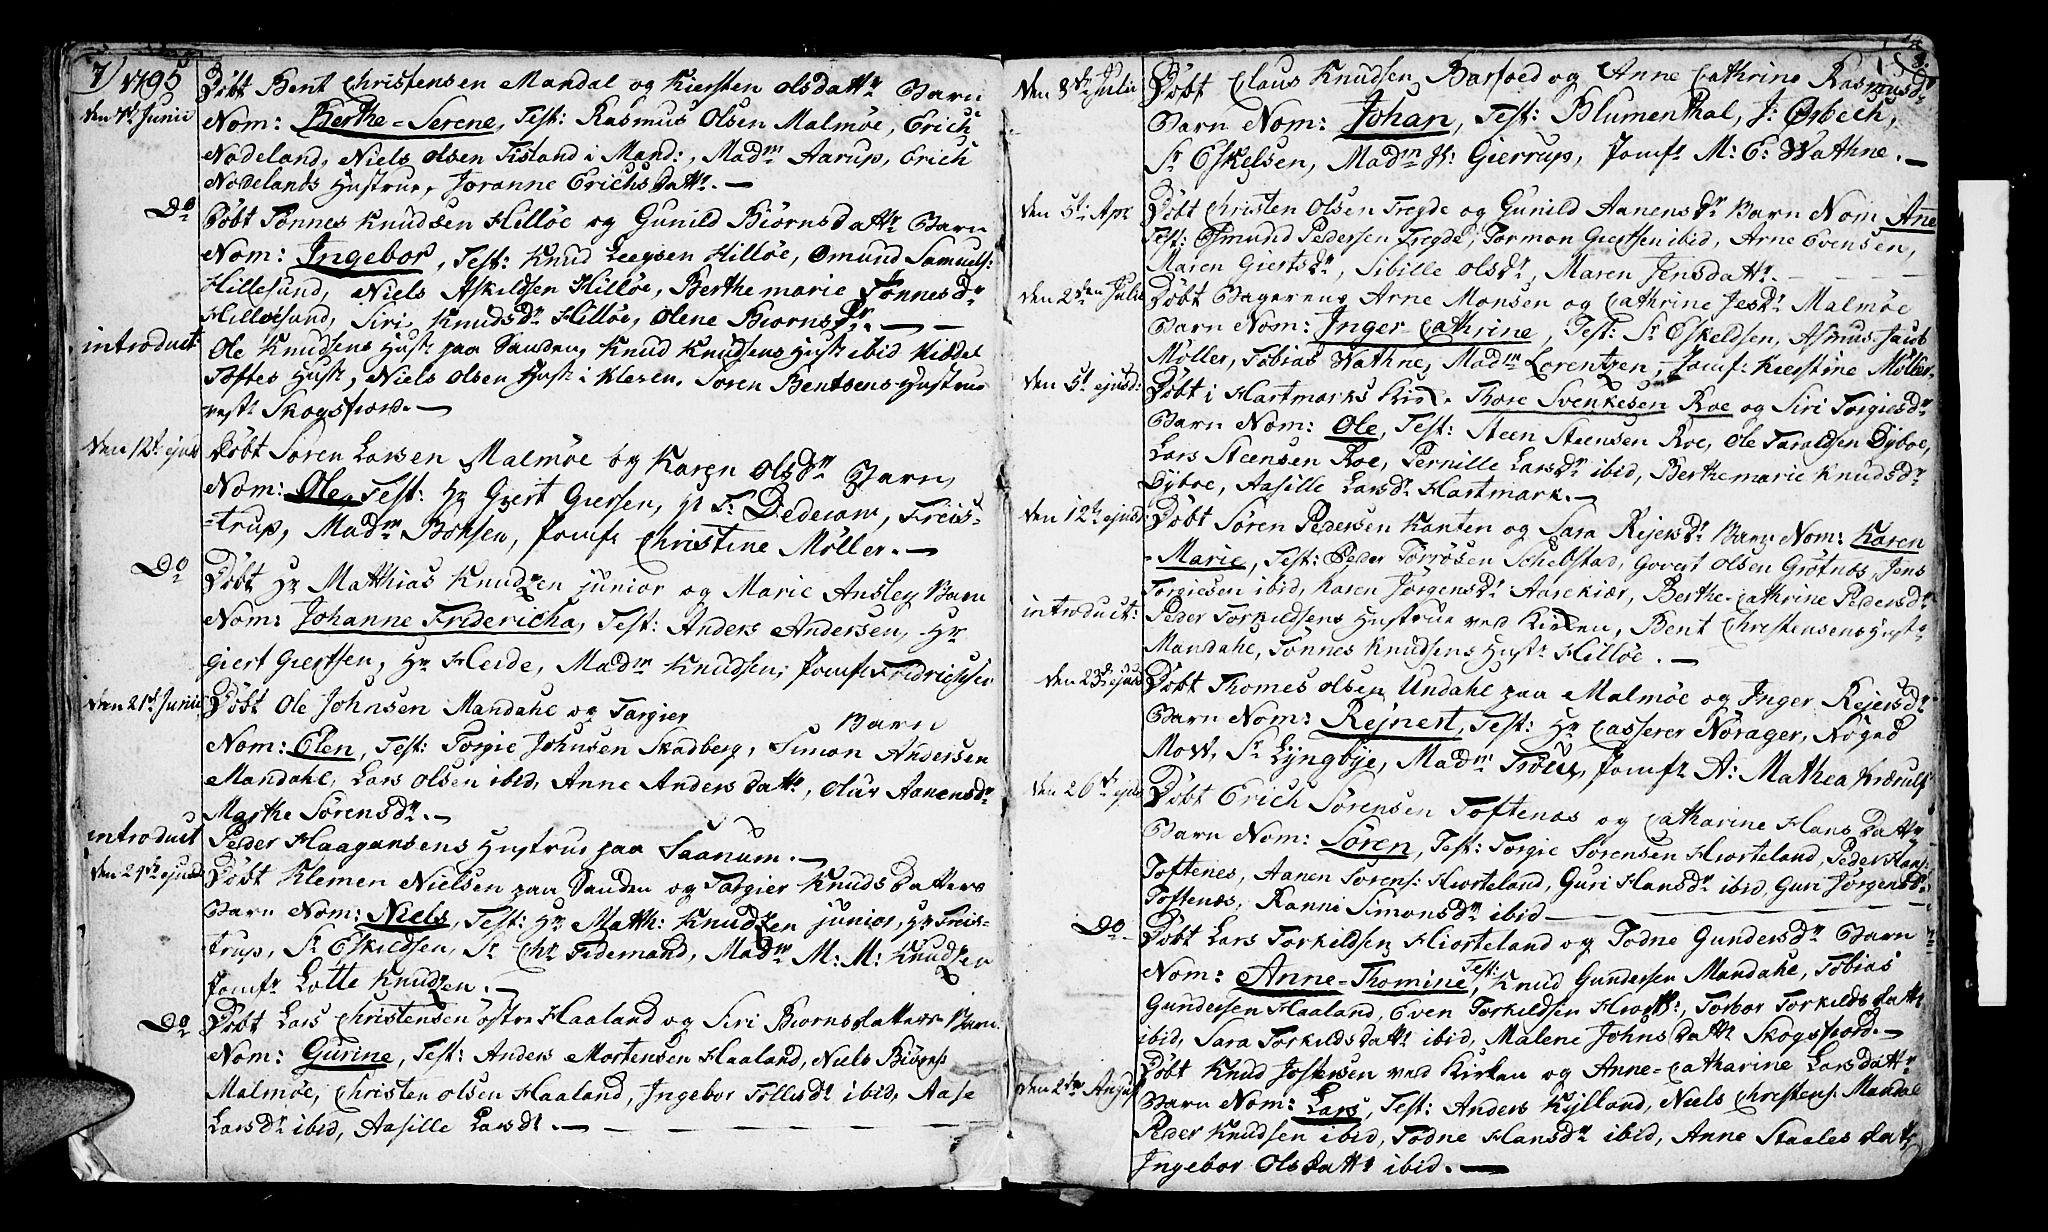 7/ 1795
den 7de Junii
Døbt Bent Christensen Mandal og Kiersten Olsdattr Barn
Nom: Berthe=Serene, Test: Rasmus Olsen Malmøe, Erich
Nodeland, Niels Olsen Tisland i Mand:, Madm Aarup, Erich
Nodelands Hustrue, Joranne Erichsdattr. —
Do
Døbt Tønnes Knudsen Hilløe og Gunild Biørnsdattr Barn
Nom: Ingebor, Test: Knud Leegsen Hilløe, Omund Samuels:
Hillesund, Niels Askildsen Hilløe, Berthe marie Tønnesdr
Hilløesund, Siri Knudsdr Hilløe, Olene Biornsdr. —
introduct:
Ole Knudsens Hustr paa Sanden, Knud Knudsens Hustr ibid Kiddel
Toftes Hustr, Niels Olsen Hustr i Kleven, Soren Bentsens Hustrue
vestr Skogsfiord. —
den 12te ejusd
Døbt Søren Larsen Malmøe og Karen Olsdr Barn,
Nom: Ole, Test: Hr Giert Giersen, Hr F: Dedecam, Freis-
-trup, Madm Bohsen, Jomfr Christine Møller. —
Do
Døbt Hr Matthias Knudzen junior og Marie Ansley Barn
Nom: Johanne Fridericha, Test: Anders Andersen, Hr
Giert Giertsen, Hr Heide, Madm Knudsen, Jomfr Fridrichsen
den 21de Junii
Døbt Ole Johnsen Mandahl og Targier Barn
Nom: Elen, Test: Torgie Johnsen Skadberg, Simon Andersen
Mandahl, Lars Olsen ibid, Anne Andersdattr, Olav Aanensdr
Marthe Sørensdr. —
introduct
Peder Haagansens Hustrue paa Saanum. —
den 29de ejusd
Døbt Klemen Nielsen paa Sanden og Targier Knudsdatters
Barn Nom: Niels, Test: Hr Matth: Knudzen junior, Hr Freis-
trup, Sr Eskildsen, Sr Chr Tidemand, Madm M: M: Knudzen
Jomfr Lotte Knudzen. —
Do
Døbt Lars Christensen østre Haaland og Siri Biornsdatters Barn
Nom: Gurine, Test: Anders Mortensen Haaland, Niels Biørns:
Malmøe, Christen Olsen Haaland, Ingebor Tollisdr ibid, Aase
Larsdr ibid, Aasille Larsdr. —
den 8de Julii
Døbt Claus Knudsen Barfoed og Anne Cathrine Rasmusdr
Barn Nom: Johan, Test: Blumenthal, J: Orbech,
Sr Eskelsen, Madm H: Gierrup, Jomfr M: E: Wathne. —
den 5te Apr
Døbt Christen Olsen Tregde og Gunild Aanensdr Barn Nom Ane
Test: Osmund Pedersen Tregde, Tormon Giertsen ibid, Arne Evensen,
Maren Giertsdr, Sibille Olsdr, Maren Jensdattr.
den 2den Julii
Døbt Bagerens Arne Monsen og Cathrine Jesdr Malmøe
Barn Nom: Inger Cathrine, Test: Sr Eskeldsen, Asmus Jacob
Møller, Tobias Wathne, Madm Lorentzen, Jomfr Kierstine Møller.
den 5t ejusd:
Døbt i Hartmarks Kirk. Thore Svenkesen Roe og Siri Torgiesdr
Barn Nom: Ole, Test: Steen Steensen Roe, Ole Taraldsen Dyboe,
Lars Steensen Roe, Pernille Larsdr ibid, Berthe marie Knudsdr
Dyboe, Aasille Larsdr Hartmark. —
den 12te ejusd:
Døbt Søren Pedersen Kanten og Sara Rejersdr Barn Nom: Karen
-Marie, Test: Peder Torrøsen Schelstad, Govert Olsen Grøtnæs, Jens
Torgiesen ibid, Karen Jørgensdr Aarekiær, Berthe-Cathrine Pedersdr
introduct:
Peder Torkildsens Hustrue ved Kirken, Bent Christensens Hustr
Mandahl, Tønnes Knudsens Hustr Hilløe. —
den 23de ejusd
Døbt Thomes Olsen Undahl paa Malmøe og Inger Rejersdr
Barn Nom: Rejnert, Test: Hr Casserer Nørager, Røgad
Mow, Sr Lyngbye, Madm Troll, Jomfr A: Mathea Kiærulf
den 26de ejusd
Døbt Erich Sørensen Toftenæs og Catharine Hansdattr
Barn Nom: Søren, Test: Torgie Sørensen Hiorteland, Peder Hans:
Toftenes, Aanen Sorens: Hiorteland, Guri Hansdr ibid, Guri Jørgensdr
Toftenæs, Ranni Simonsdr ibid —
Do
Døbt Lars Torkildsen Hiorteland og Todne Gundersdr Barn
Nom: Anne-Thomine, Test: Knud Gundersen Mandahl, Tobias
Gundersen Haaland, Even Torkildsen Hiortl:, Torbor Torkildsdattr
ibid, Sara Torkildsdattr ibid, Malene Johnsdattr Skogsfiord. —
den 2den August
Døbt Knud Jostensen ved Kirken og Anne-Catharine Larsdattr
Barn Nom: Lars, Test: Anders Kylland, Niels Christens: Mandal
Peder Knudsen ibid, Todne Hansdr ibid, Anne Staalesdatr
Ingebor Olsdattr ibid. —